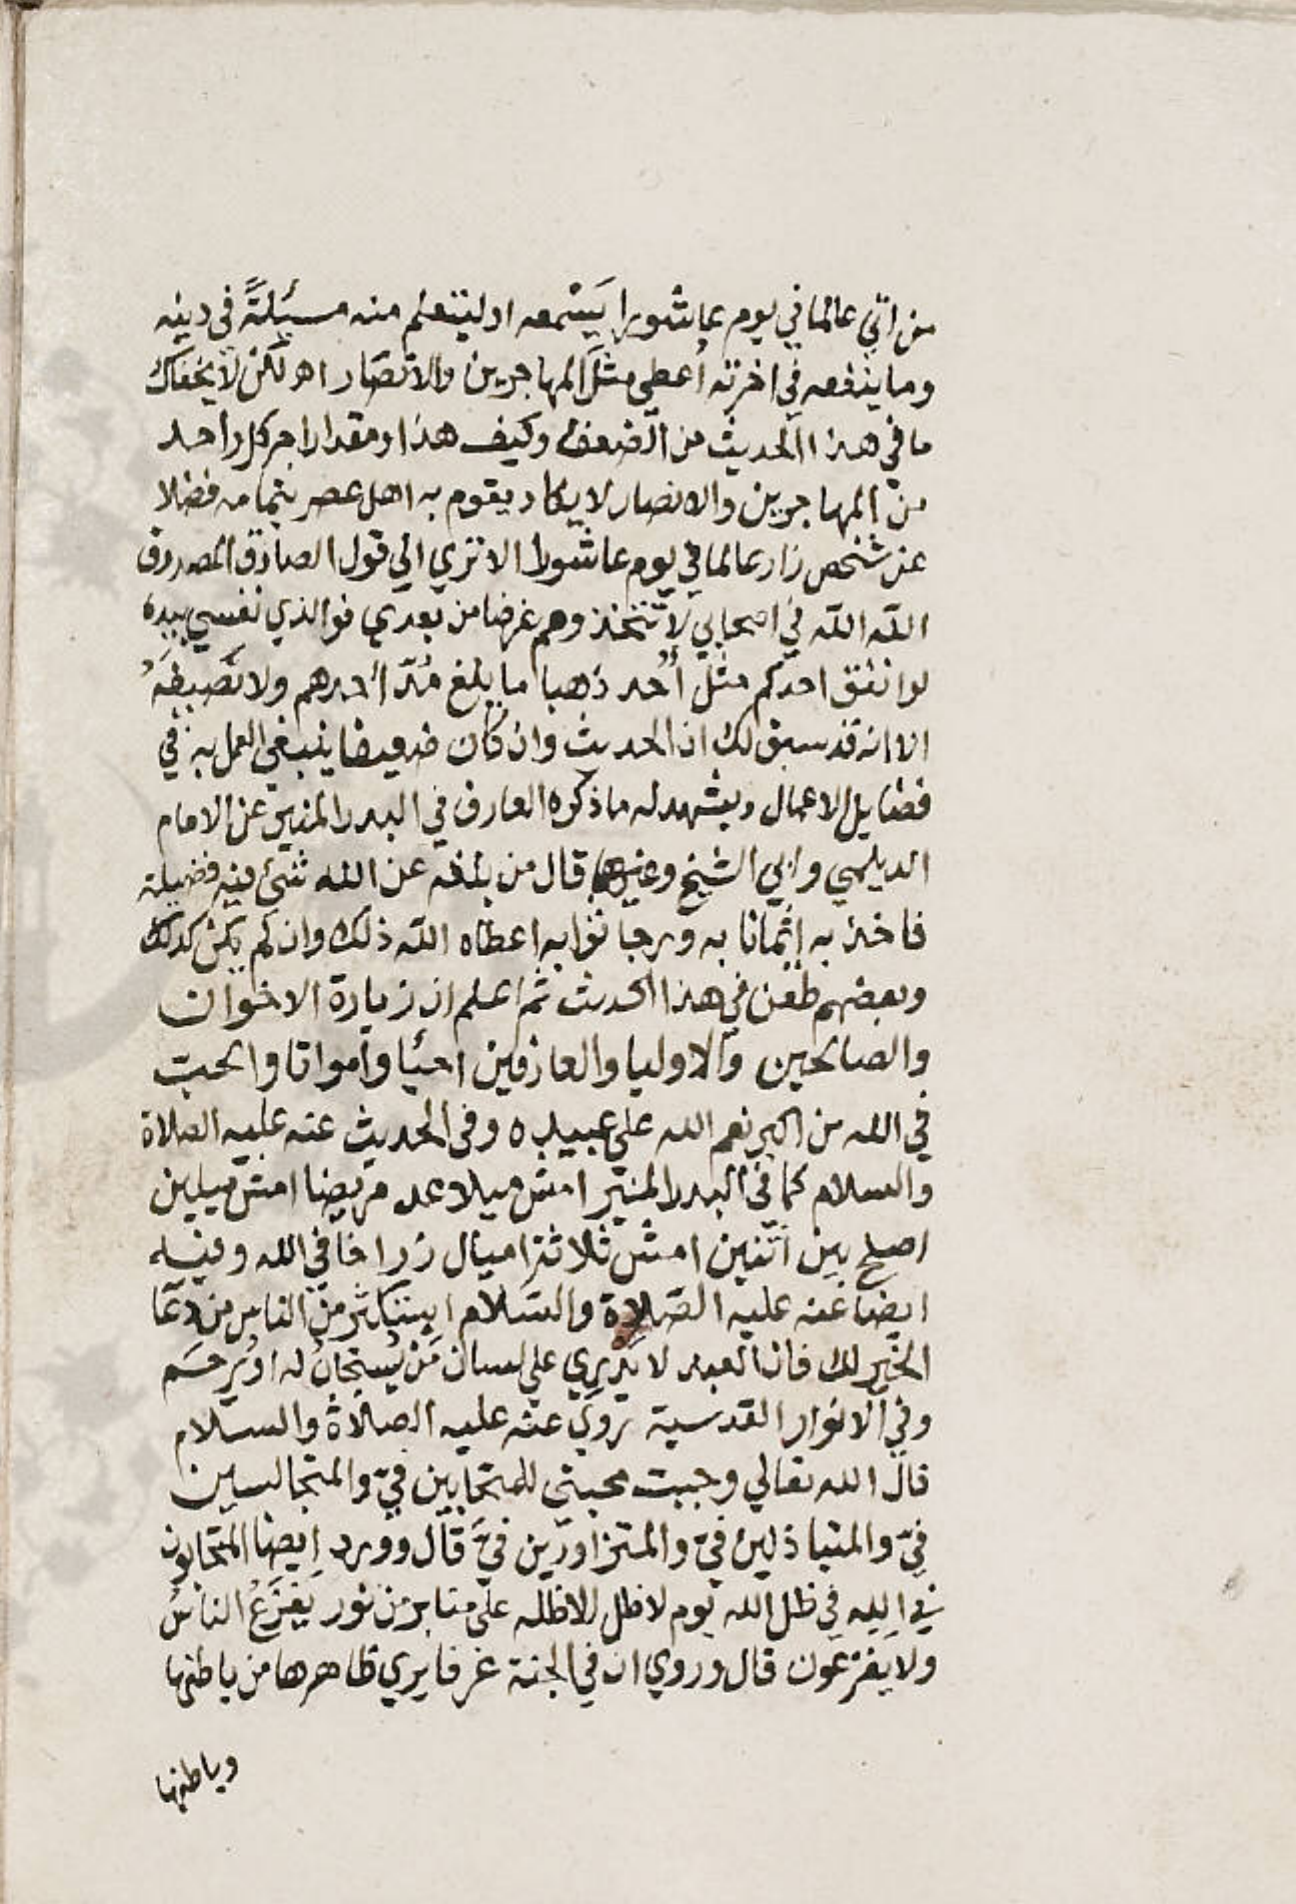 من اتي عالما في يوم عاشورا يَسْمعه او ليتعلم منه مسئلةً في دينه
وما ينفعه في اخرته أعطي مثل المهاجرين والانصار اهـ لكن لا يخفاك
ما في هذا الحديث من الضعف وكيف هذا ومقدار اجر كل واحد
من المهاجرين والانصار لا يكاد يقوم به اهل عصر بتمامه فضلا
عن شخص زار عالما في يوم عاشورا الا تري الي قول الصادق المصدوق
الله الله في اصحابي لا تتخذوهم غرضا من بعدي فوالذي نفسي بيده
لو انفق احدكم مثل أُحد ذهبا ما بلغ مُدّ أحدهم ولا نَصيفَهُ
الا انه قد سبق لك ان الحديث وان كان ضعيفا ينبغي العمل به في
فضايل الاعمال ويشهد له ما ذكره العارف في البدر المنير عن الامام
الديلمي وابي الشيخ وغيرهما قال من بلغه عن الله شئ فيه فضيلة
فاخذ به إيمانا به ورجا ثوابه اعطاه الله ذلك وان لم يكن كذلك
وبعضهم طعن في هذا الحديث ثم اعلم ان زيارة الاخوان
والصالحين والاوليا والعارفين احيا وامواتا والحب
في الله من اكبر نعم الله علي عبيده وفي الحديث عنه عليه الصلاة
والسلام كما في البدر المنير امش ميلا عد مريضا امش ميلين
اصلح بين اثنين امش ثلاثة اميال زر اخا في الله وفيه
ايضا عنه عليه الصّلاة والسّلام ليستكثر من الناس من دعا
الخير لك فان العبد لا يدري علي لسان مَنْ يُستجابُ له او يُرحَم
وفي الانوار القدسية روي عنه عليه الصلاة والسلام
قال الله تعالي وجبت محبتي للمتحابين فيّ والمتجالسين
فيّ والمتباذلين فيّ والمتزاورين فيَّ قال وورد ايضا المتحابون
في الله في ظل الله يوم لا ظل الا ظله علي منابر من نور يَفزَعُ الناسُ
ولا يفزعون قال وروي ان في الجنة غرفا يري ظاهرها من باطنها
وباطنها